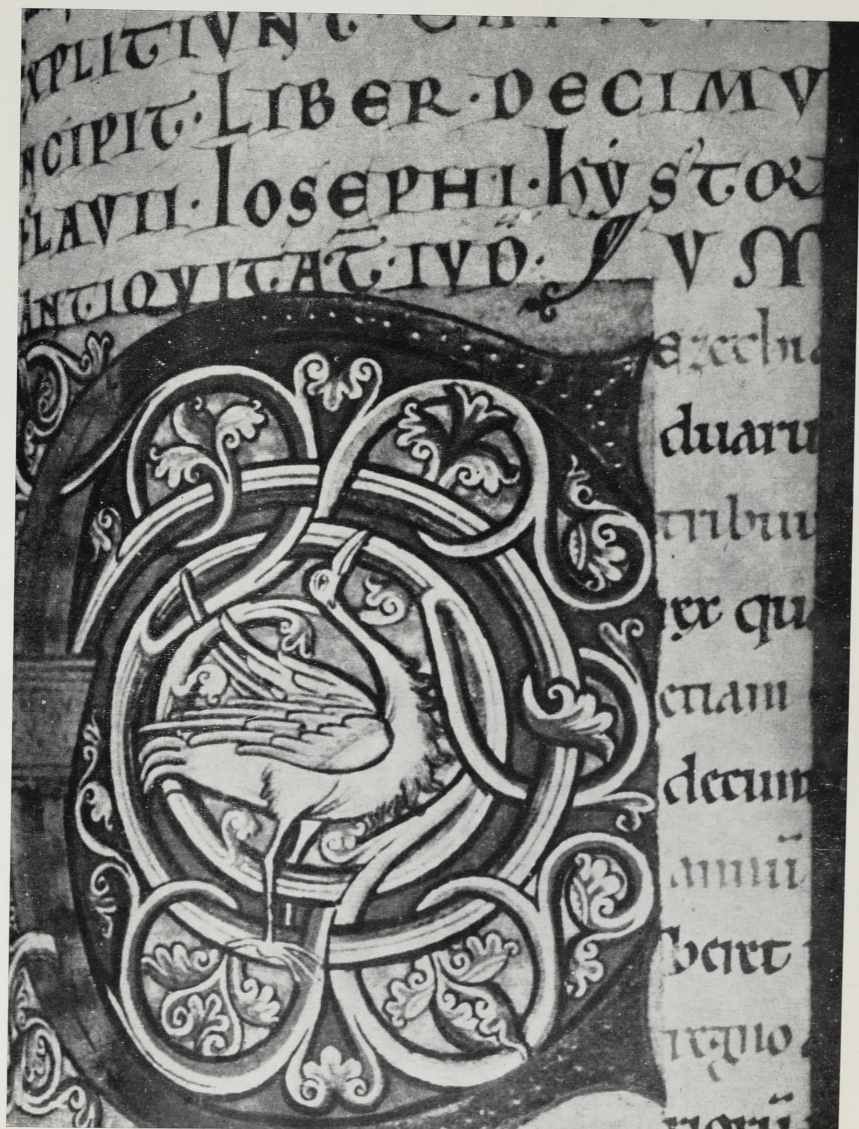 XPLITIVNT · CAPITVL
NCIPIT · LIBER · DECIMV
FLAVII · IOSEPHI · hYSTOR
ANTIQVITAT̄ · IVD̄ · VM
Ezechia
duaru
tribuu
rex qu
etiam
decum
annū
regno